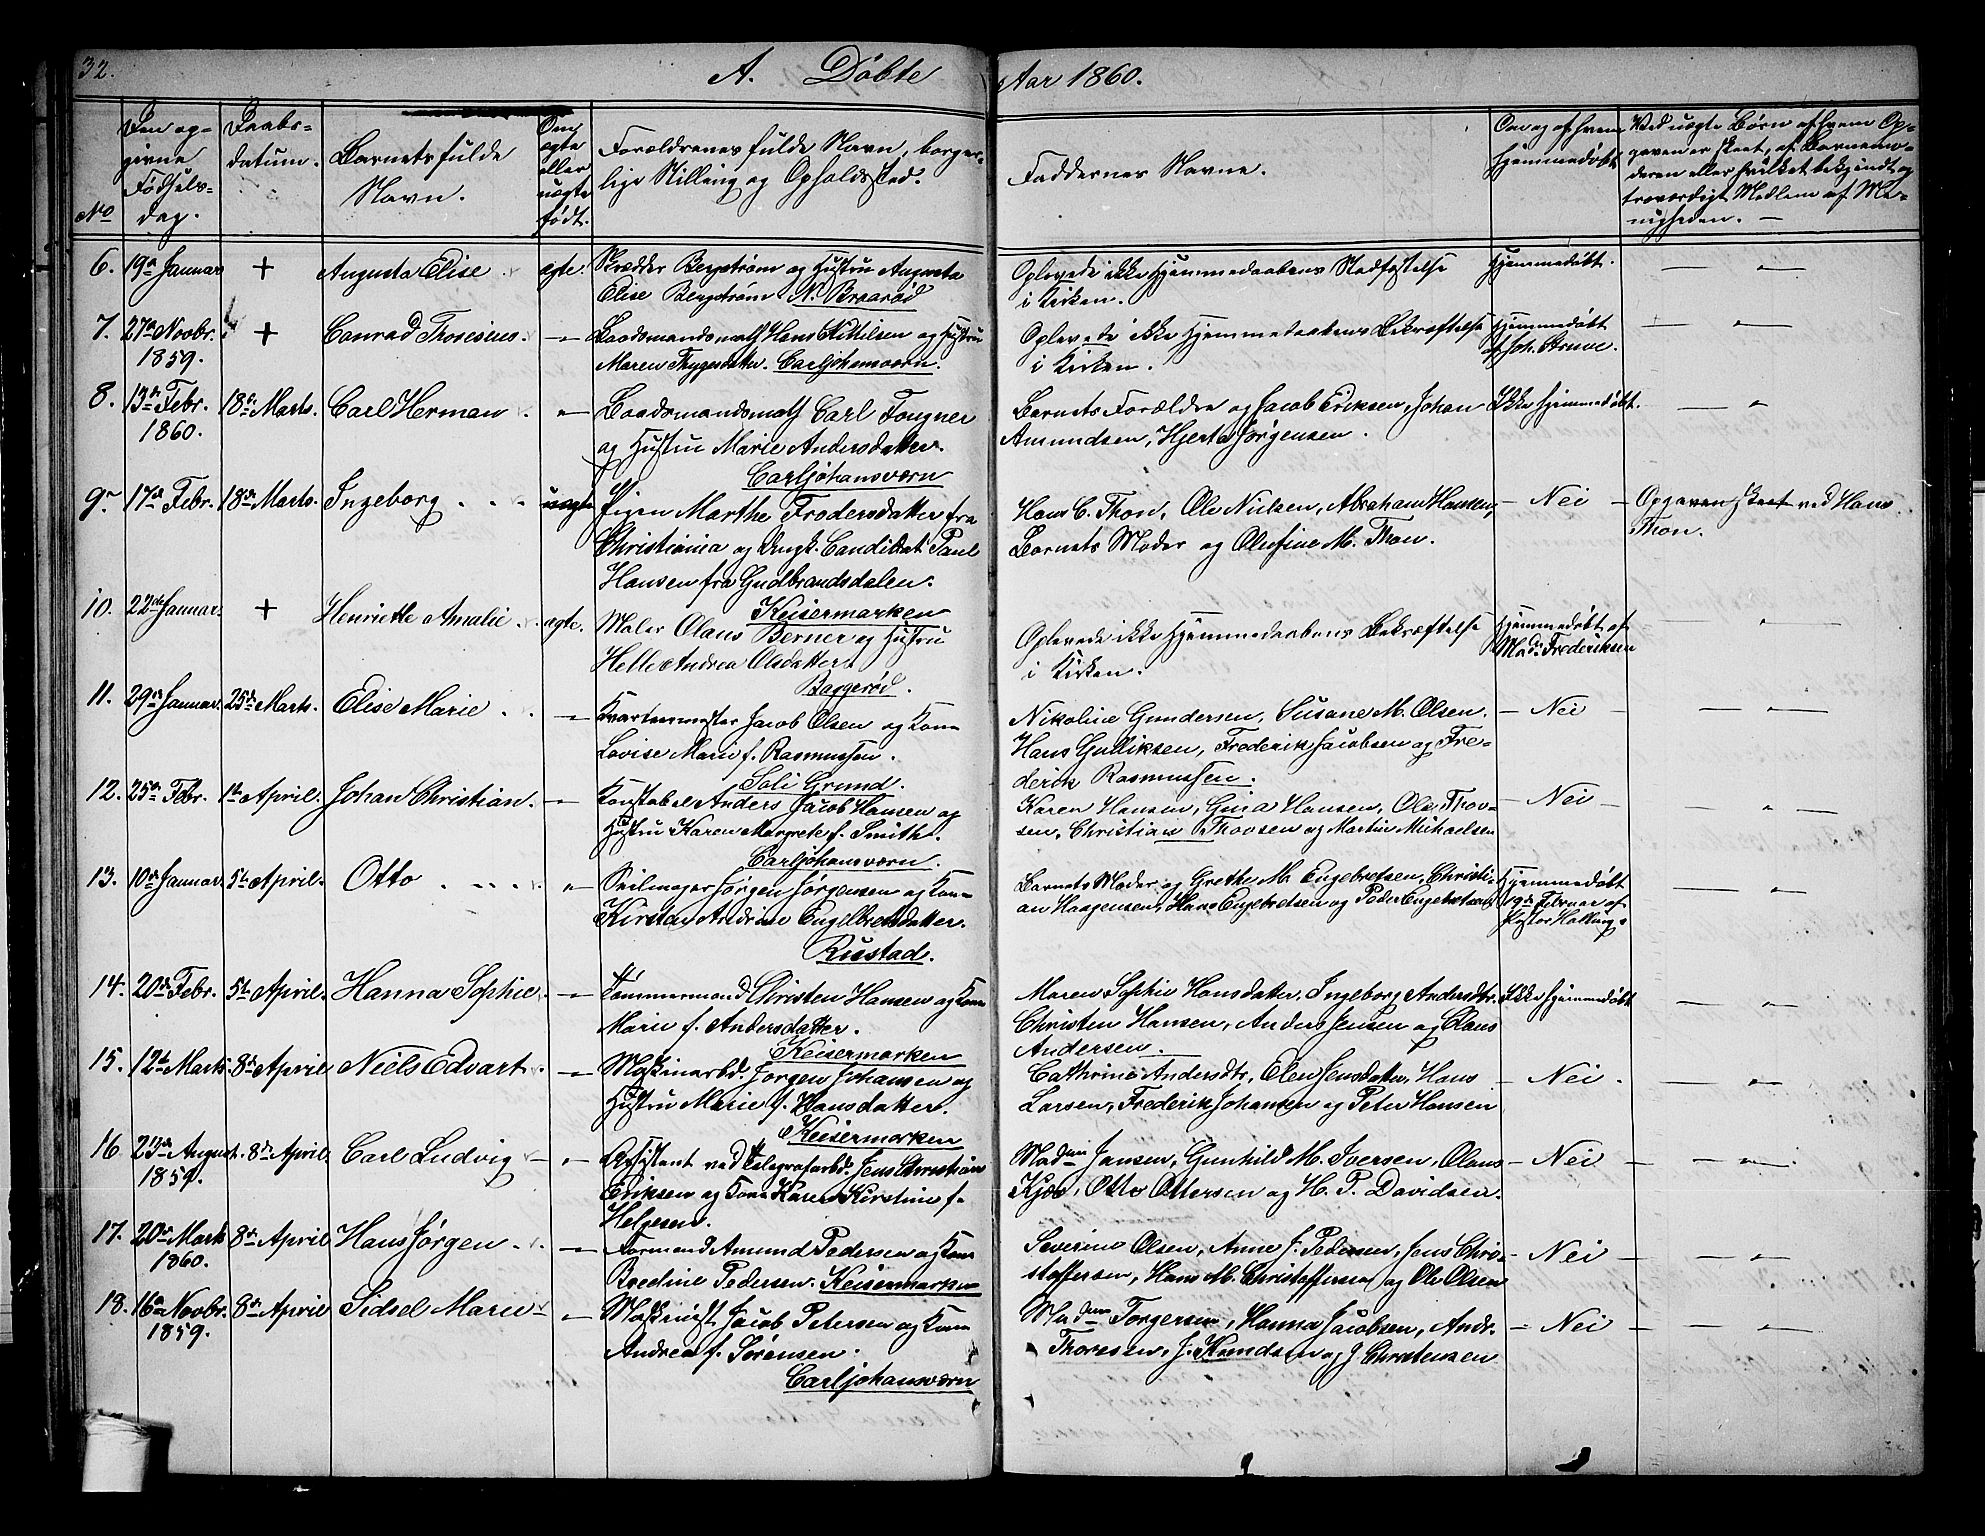 32.
A. Döbte
Aar 1860.
No
Den op-
givne
Fødsels-
dag.
Daabs-
datum.
Barnets fulde
Navn.
Om
ægte
eller
uægte
født.
Forældrenes fulde Navn, borger-
lige Stilling og Opholdssted.
Faddernes Navne.
Om og af hvem
hjemmedøbt.
Ved uægte Børn af hvem Op-
gaven er skeet, af Barnemo-
deren eller hvilket bekjendt og
troværdigt Medlem af Me-
nigheden. —
6. 19de Januar + Augusta Elise ægte. Skrædder Bergstrøm og Hustru Augusta
Elise Bergstrøm N. Braarød
Oplevede ikke Hjemmedaabens Stadfæstelse
i Kirken.
Hjemmedøbt. — " —
7. 27de Novbr.
1859.
+ Conrad Thoresius — " — Baadsmandsmath Hans Kittilsen og Hustru
Maren Thygesdatter. Carljohansværn.
Oplevede ikke Hjemmedaabens Bekræftelse
i Kirken.
Hjemmedøbt
af Joh. Struve. — " —
8. 13de Febr.
1860.
18de Marts. Carl Herman. " Baadsmandsmath Carl Fougner
og Hustru Marie Andersdatter.
Carljohansværn
Barnets Forældre og Jacob Eriksen, Johan
Amundsen, Hjerta Jørgensen.
Ikke hjemmedøbt. — "
9. 17de Febr. 18de Marts. Ingeborg . . . uægte Pigen Marthe Frodersdatter fra
Christiania og Ungk. Candidat Paul
Hansen fra Gudbrandsdalen.
Keisermarken
Hans C. Thon, Ole Nielsen, Abraham Hansen,
Barnets Moder og Olufine M. Thon.
— Nei — Opgaven skeet ved Hans
Thon.
10. 22de Januar. + Henriette Amalie . ægte. Maler Olaus Berner og Hustru
Helle Andrea Olsdatter.
Baggerød.
Oplevede ikke Hjemmedaabens Bekræftelse
i Kirken.
Hjemmedøbt af
Mad. Frederiksen — " —
11. 29de Januar. 25de Marts. Elise Marie . . — " Kvartermester Jacob Olsen og Kone
Lovise Marie f. Rasmussen.
Soli Grund.
Nikoline Gundersen, Susane M. Olsen.
Hans Gulliksen, Frederik Jacobsen og Fre-
derik Rasmussen.
— Nei — — " —
12. 25de Febr. 1ste April. Johan Christian. — " — Konstabel Anders Jacob Hansen og
Hustru Karen Margrete f. Smith.
Carljohansværn.
Karen Hansen, Gina Hansen, Ole Thov-
sen, Christian Thovsen og Martin Michaelsen
— Nei — — " —
13. 10de Januar. 5te April. Otto . . . . " Seilmager Jørgen Jørgensen og Kone
Kirsten Andrine Engelbretsdatter.
Rustad.
Barnets Moder og Grethe M. Engebretsen, Christi-
an Haagensen, Hans Engebretsen og Peder Engebretsen
Hjemmedøbt
19de Februar af
Kloster Halling. — " —
14. 20de Febr. 5te April. Hanna Sophie. — " — Tømmermand Christen Hansen og Kone
Marie f. Andersdatter.
Keisermarken
Maren Sophie Hansdatter, Ingeborg Andersdtr.
Christen Hansen, Anders Jensen og Olaus
Andersen.
Ikke hjemmedøbt — " —
15. 12te Marts. 8de April Niels Edvart — " — Maskinarbd. Jørgen Johansen og
Hustru Marie f. Hansdatter.
Keisermarken
Cathrine Andersdtr, Elen Jensdatter, Hans
Larsen, Frederik Johansen og Peter Hansen
— Nei. — " —
16. 23de August.
1859.
8de April. Carl Ludvig — " — Assistent ved Telegrafarbd. Jens Christian
Eriksen og Kone Karen Kirstine f.
Helgesen.
Madm Jansen, Gunhild M. Iversen, Olaus
Kjøs, Otto Ottersen og H. P. Davidsen.
— Nei — — " —
17. 20de Marts
1860.
8de April Hans Jørgen . — " — Formand Amund Pedersen og Kone
Bredine Pedersen. Keisermarken
Severine Olsen, Anne J. Pedersen, Jens Chri-
stoffersen, Hans M. Christoffersen og Ole Olsen
— Nei — — " —
18. 16de Novbr.
1859.
8de April Sidsel Marie — " — Maskinist Jacob Petersen og Kone
Andrea f. Sørensen.
Carljohansværn
Madm Torgersen, Hanna Jacobsen, Andr.
Thoresen, J. Knudsen og J. Christensen
— Nei — — " —